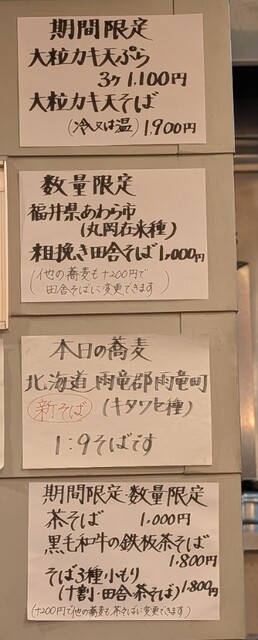 期間限定
大粒カキ天ぷら
3ヶ 1,100円
大粒カキ天そば
(冷又は温) 1,900円
数量限定
福井県あわら市
(丸岡在来種)
粗挽き田舎そば 1,000円
(他の蕎麦も+200円で
田舎そばに変更できます)
本日の蕎麦
北海道 雨竜郡雨竜町
新そば (キタワセ種)
1:9そばです
期間限定・数量限定
茶そば 1,000円
黒毛和牛の鉄板茶そば
1,800円
そば3種小もり
(十割・田舎・茶そば) 1,800円
(+200円で他の蕎麦も茶そばに変更できます)